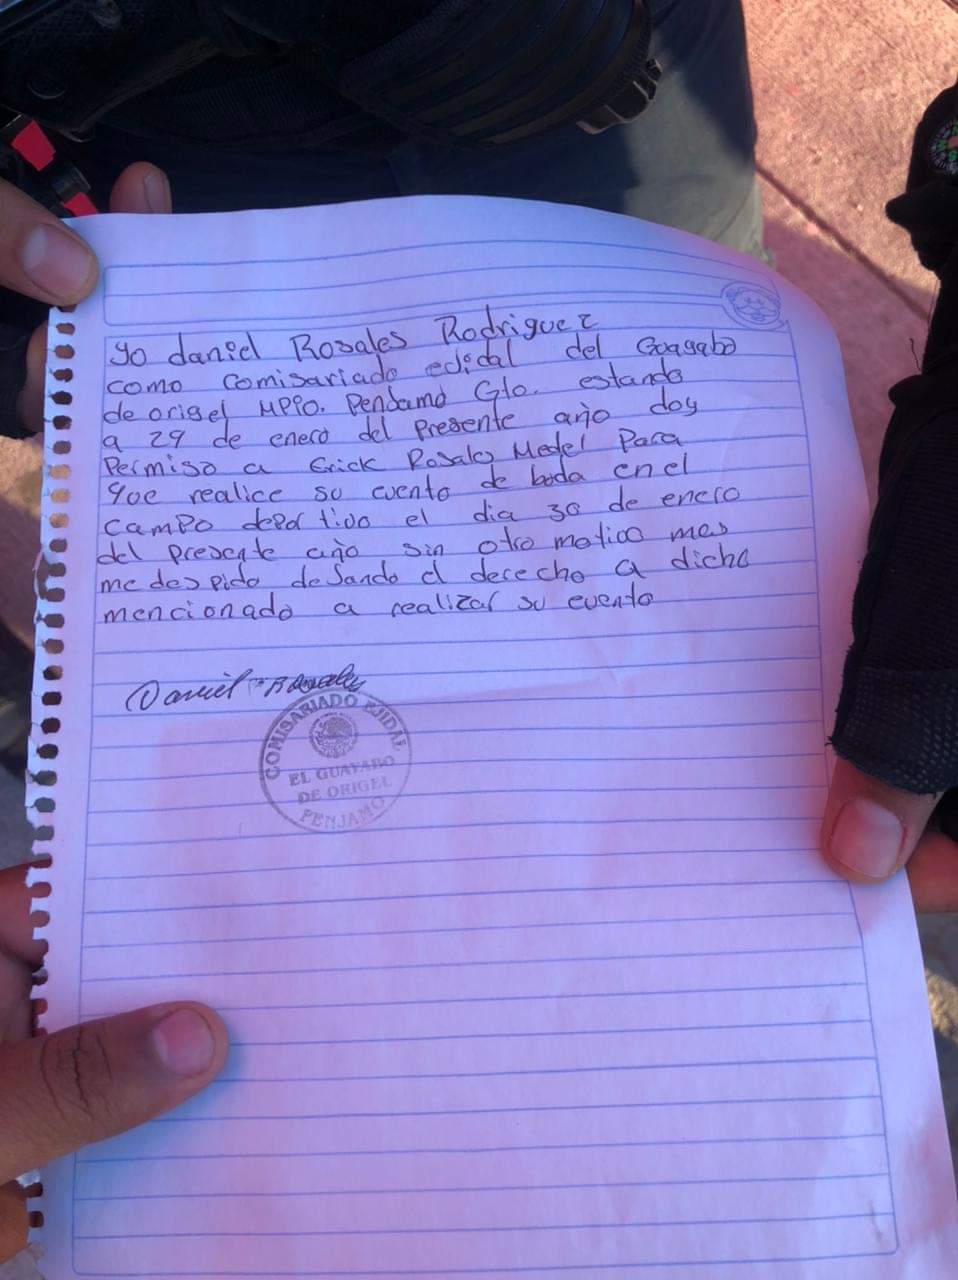 yo daniel Rosales Rodriguez
como comisariado edidal del Guagabo
de origel MPIO. Pendamo Gto. estando
a 29 de enero del presente año doy
Permiso a Erick Rosales Medel Para
que realice su evento de boda en el
campo deportivo el dia 30 de enero
del presente año sin otro motivo mas
me despido desando el derecho a dicho
mencionado a realizar su evento
Daniel Rosales
COMISARIADO EJIDAL
EL GUAYABO
DE ORIGEL
PENJAMO